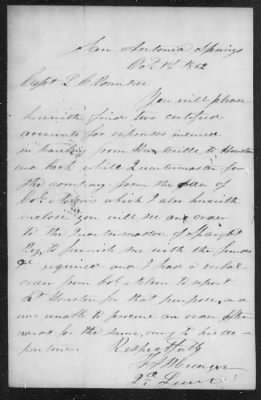 San Antonio Springs
Oct 1st 1862
Capt
You will please
herewith find two certified
accounts for expenses incured
in hauling from to Houston
and back while Quartermaster for
the company, from the of
Col which I also herewith
enclose you will see an order
to the Quartermaster of Speight
Regt to furnish me with the funds
&c required and I had a verbal
order from Col to report
at Houston for that purpose, and
was unable to procure an order
for the same, owing to his
Respectfully
2d Lieut